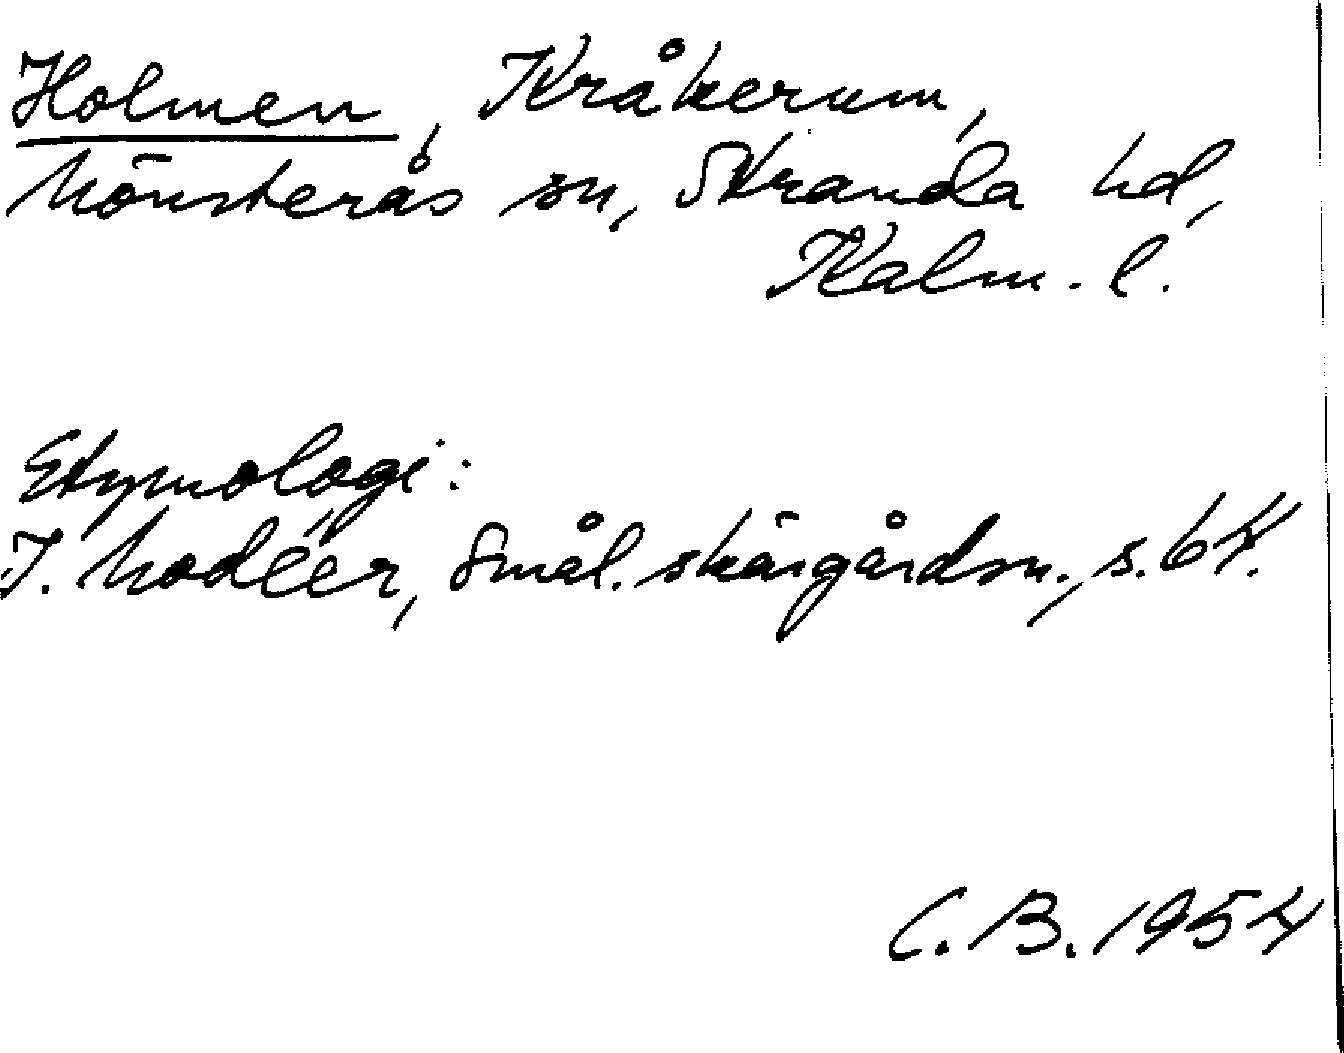 Holmen, Kråkerum,
Mönsterås sn, Stranda hd,
Kalm. l.
Etymologi:
I. Modéer, Smål. skärgårdsn., s. 64.
C. B. 1954